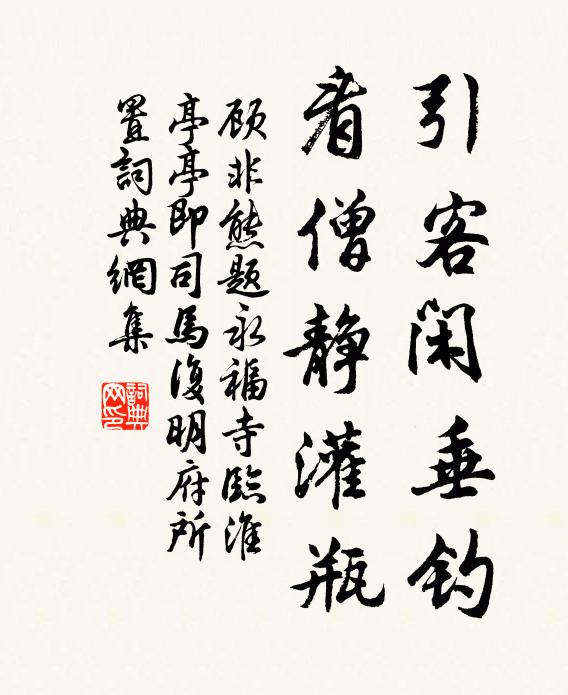 引客闲垂钓
看僧静灌瓶
顾非熊题永福寺临淮
亭亭即司马复明府所
置詞典網集
詞典
网印